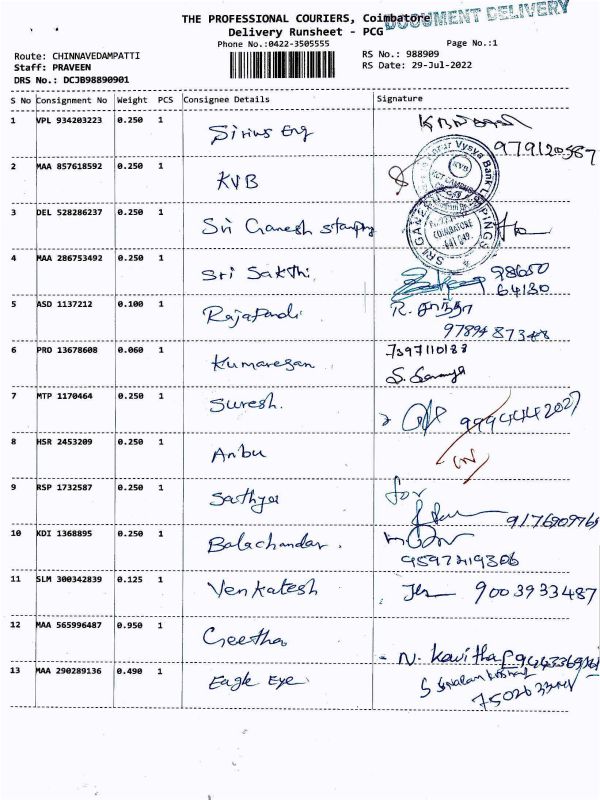 DOCUMENT DELIVERY
THE PROFESSIONAL COURIERS, Coimbatore
Delivery Runsheet - PCG
Phone No.:0422-3505555
Page No.:1
Route: CHINNAVEDAMPATTI
RS No.: 988909
Staff: PRAVEEN
RS Date: 29-Jul-2022
DRS No.: DCJB98890901
S No Consignment No Weight PCS Consignee Details Signature
1 VPL 934203223 0.250 1 Sirius Eng
2 MAA 857618592 0.250 1 KVB
Vysya Bank
KVB
3 DEL 528286237 0.250 1 Sri Ganesh stamping
SRI GANESH STAMPINGS
COIMBATORE
4 MAA 286753492 0.250 1 Sri Sakthi 98650
64130
5 ASD 1137212 0.100 1 Rajapandi R.
97894 87348
6 PRO 13678608 0.060 1 Kumaresan 7397110188
S. Saranya
7 MTP 1170464 0.250 1 Suresh. 9994442027
8 HSR 2453209 0.250 1 Anbu
9 RSP 1732587 0.250 1 Sathya for
10 KDI 1368895 0.250 1 Balachandar.
9597219306
11 SLM 300342839 0.125 1 Venkatesh 9003933487
12 MAA 565996487 0.950 1 Geetha
N. Kavitha
13 MAA 290289136 0.490 1 Eagle Eye